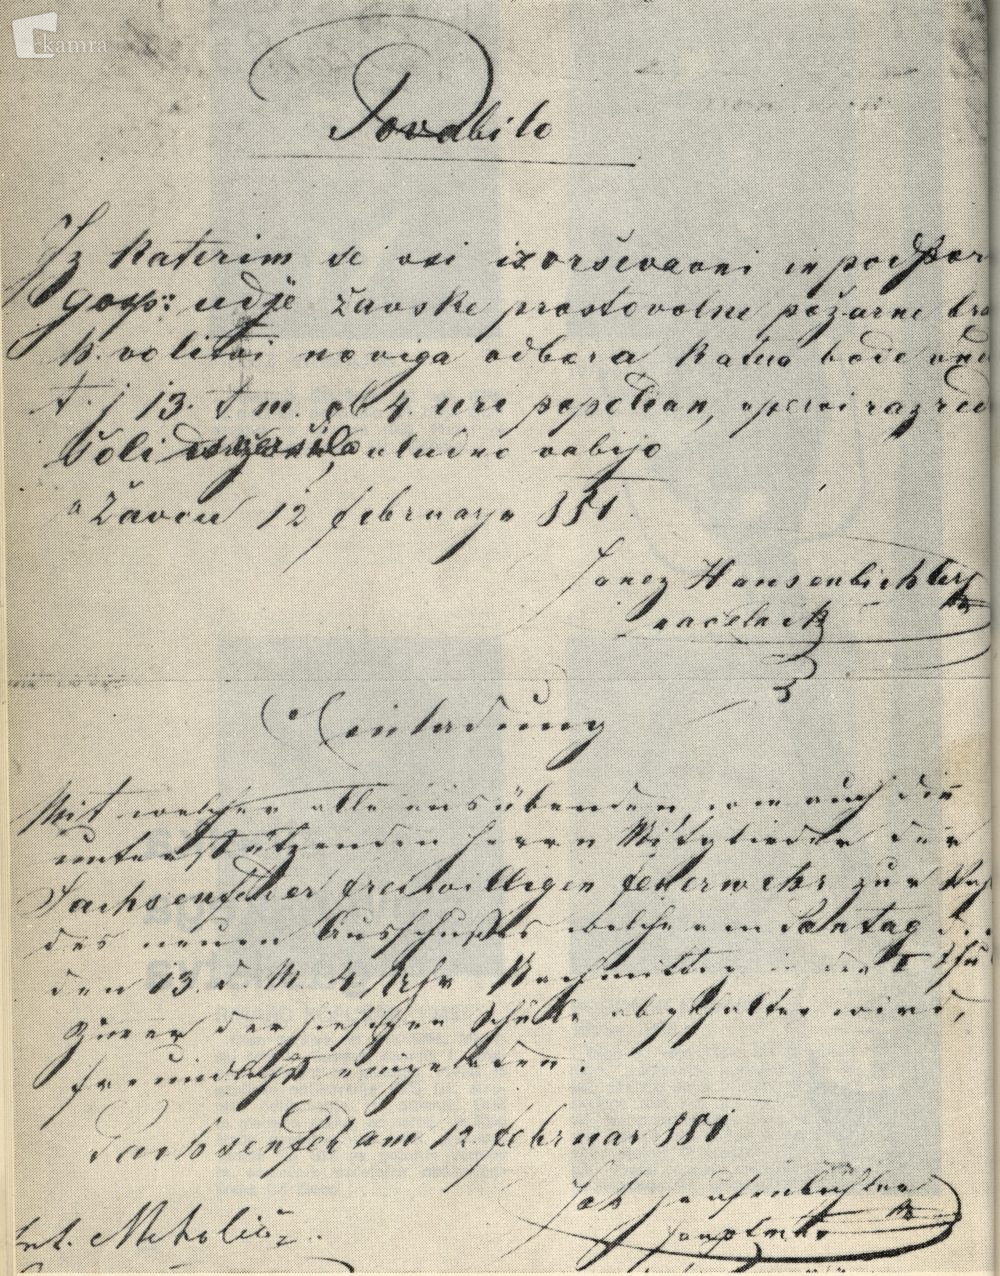 kamra
Povabilo
Iz katerim se vsi izvrševavni in podpor
gosp: udje žavske prostovolne požarne bra
k. volitvi noviga odbora katira bode v ned
t. j 13. t m. ob 4. uri popoldan, v pervi razred
šoli uludno vabijo
v Žavcu 12 februarja 881
Janez Hausenbichler
nacelnik
Einladung
Mit welcher alle ausübenden, wie auch die
unterstützenden Herrn Mitglieder der
Sachsenfelder freiwilligen Feuerwehr zur Wah
des neuen Ausschußes welche am Sontag d.
den 13. d. M. 4 Uhr Nachmittag in der I Schul
der hiesigen Schule abgehalten wird,
freundlichst eingeladen.
Sachsenfeld am 12 februar 881
Joh Hausenbichler
Hauptman